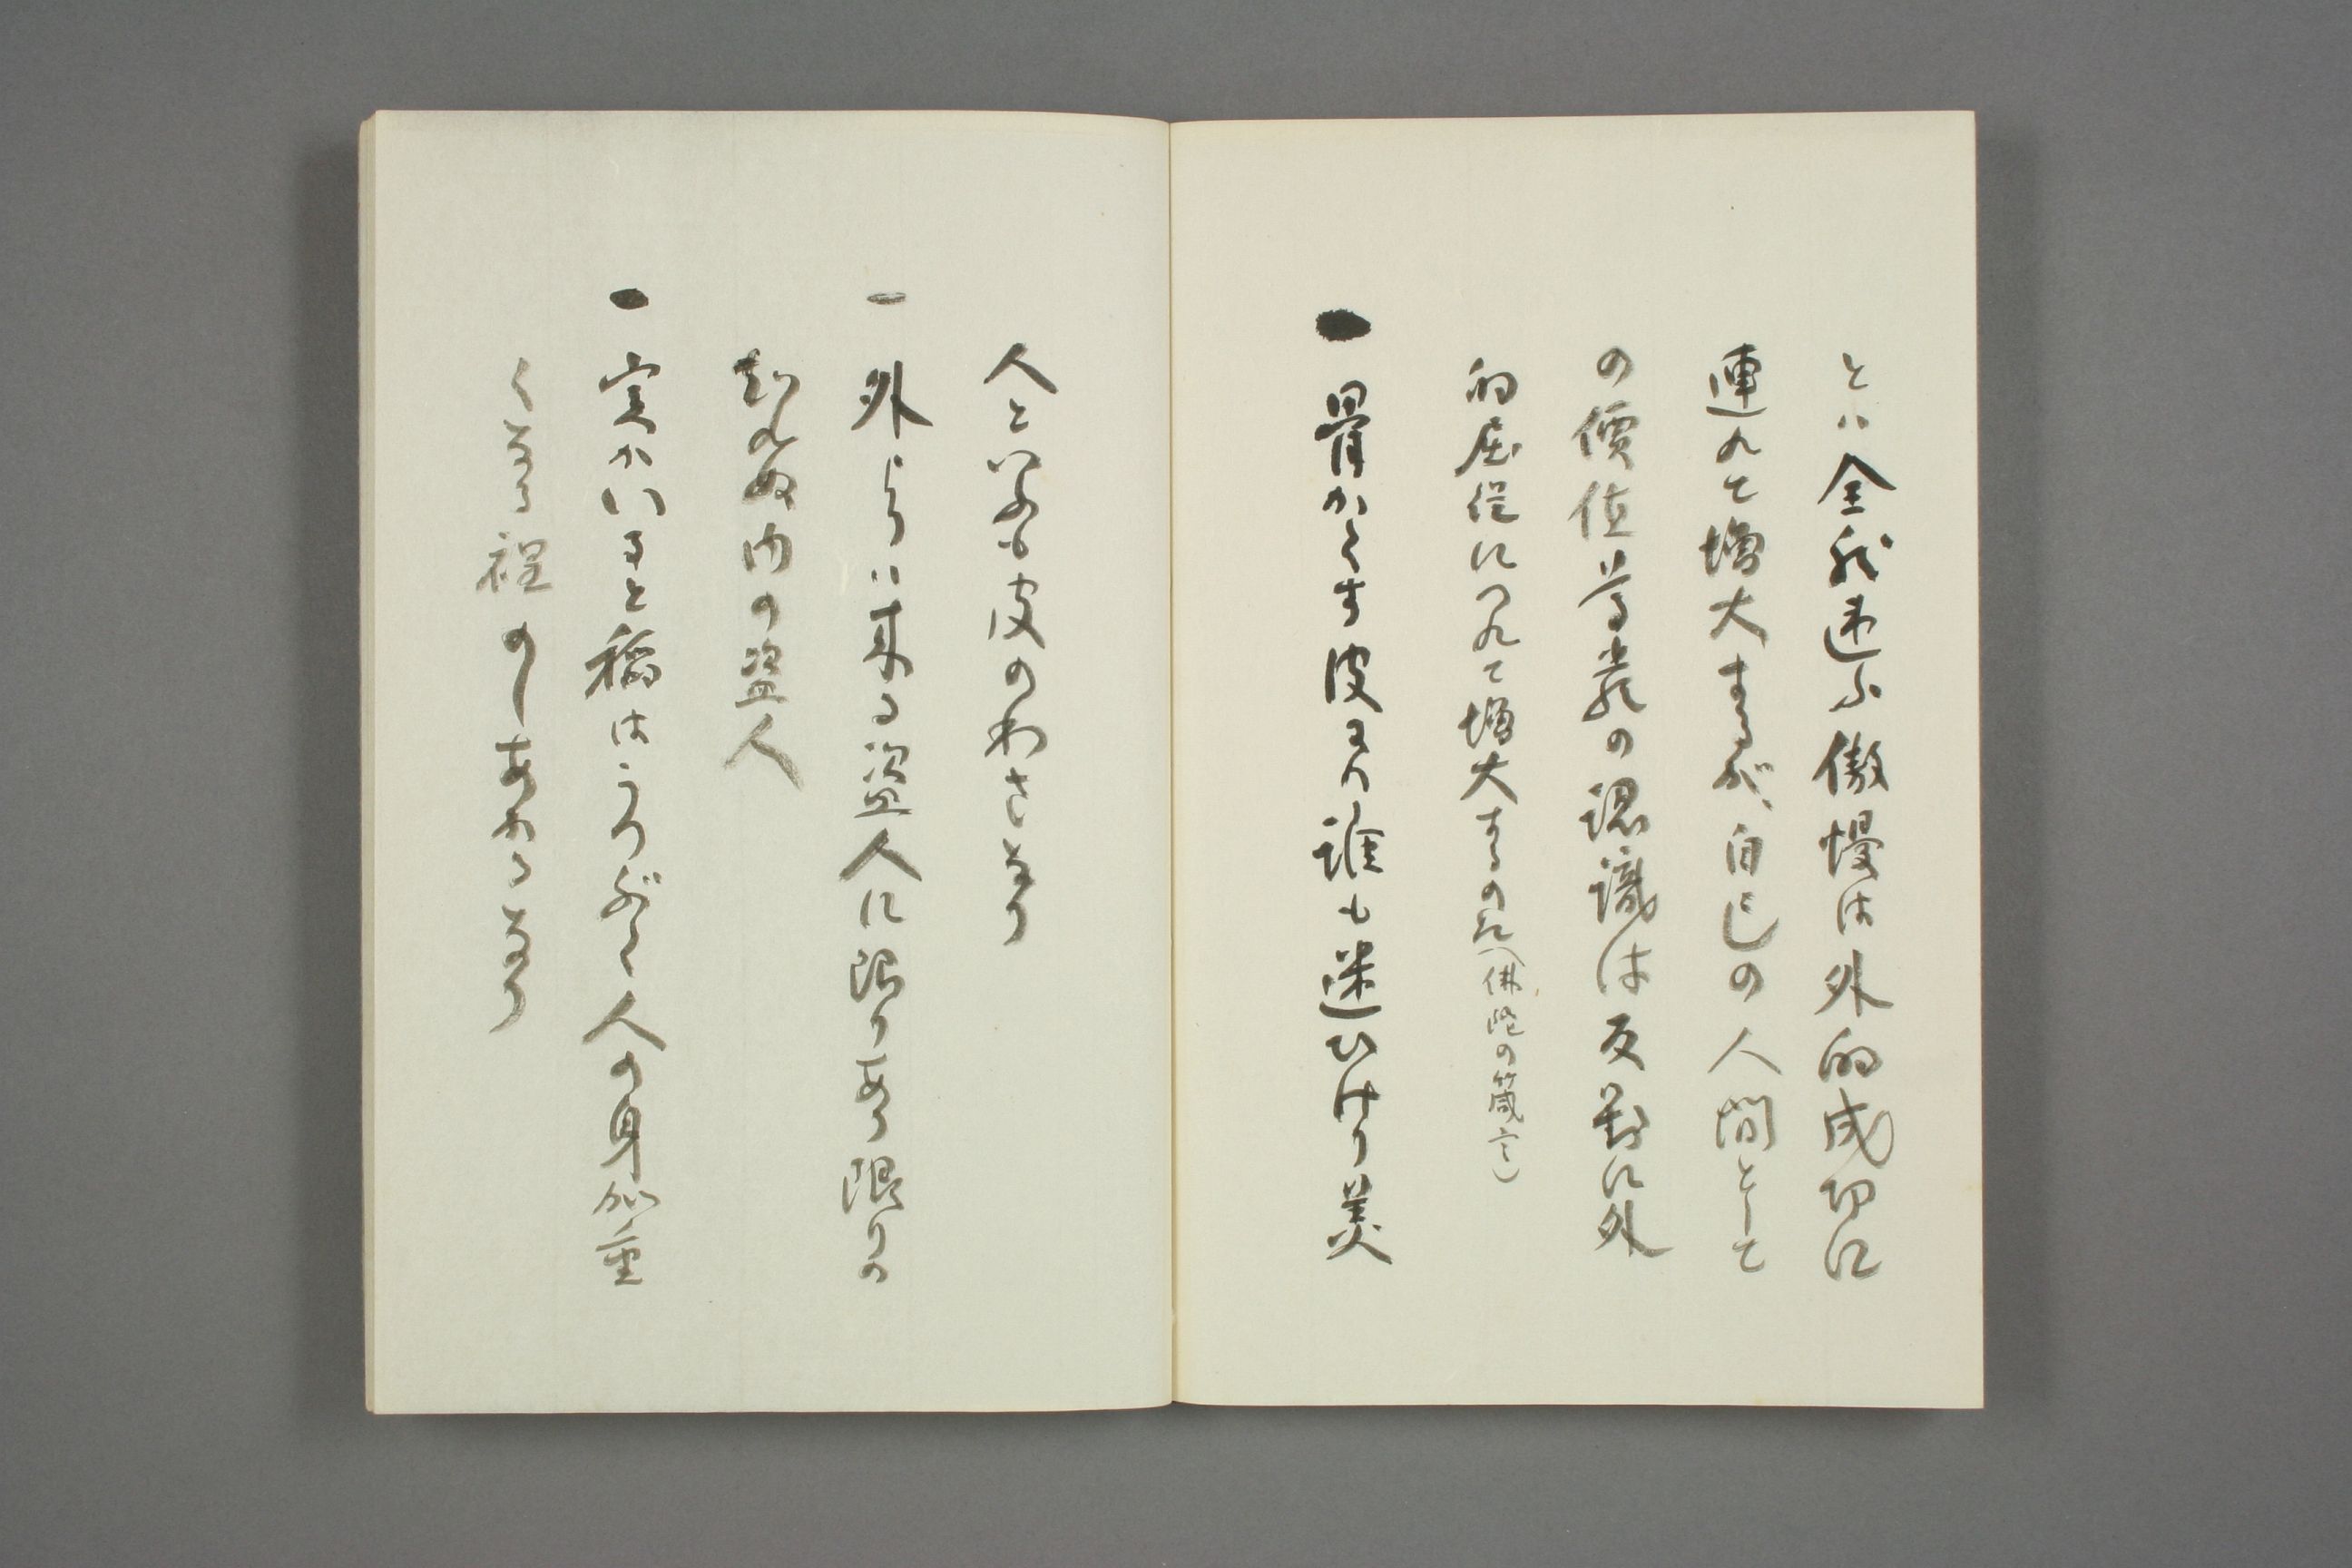 とハ全然違ふ傲慢は外的成功に
連れて増大するが、自己の人間として
の價値尊嚴の認識は反對に外
的屈從につれて増大するのだ(佛陀の箴言)
一 骨かくす皮まり誰も迷ひけり美
人といふも皮のわさなり
一 外よりハ来る盗人に限りあり限りの
知れぬ内の盗人
一 実かいると稲はうつぶく人の身ハ重
くなる程のしあかるなり